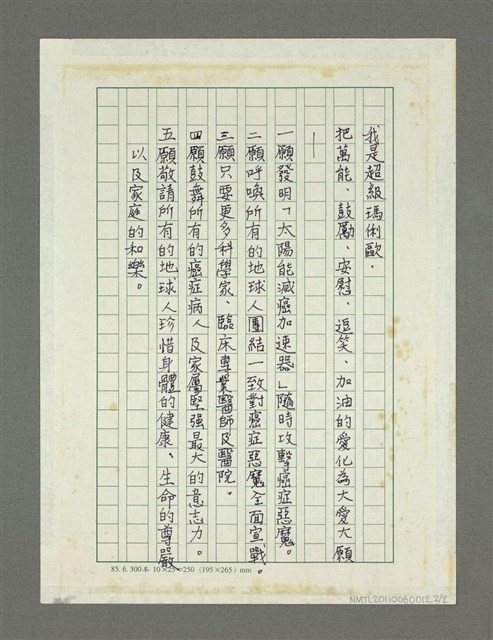 我是超級瑪俐歐．
把萬能、鼓勵、安慰、逗笑、加油的愛化為大愛大願
——
一願發明「太陽能滅癌加速器」隨時攻擊癌症惡魔。
二願呼喚所有的地球人團結一致對癌症惡魔全面宣戰。
三願只要更多科學家、臨床專業醫師及醫院。
四願鼓舞所有的癌症病人及家屬堅强最大的意志力。
五願敬請所有的地球人珍惜身體的健康、生命的尊嚴
以及家庭的和樂。
85.6.300本 10×25=250 (195×265) mm
NMTL20110060012.2/2